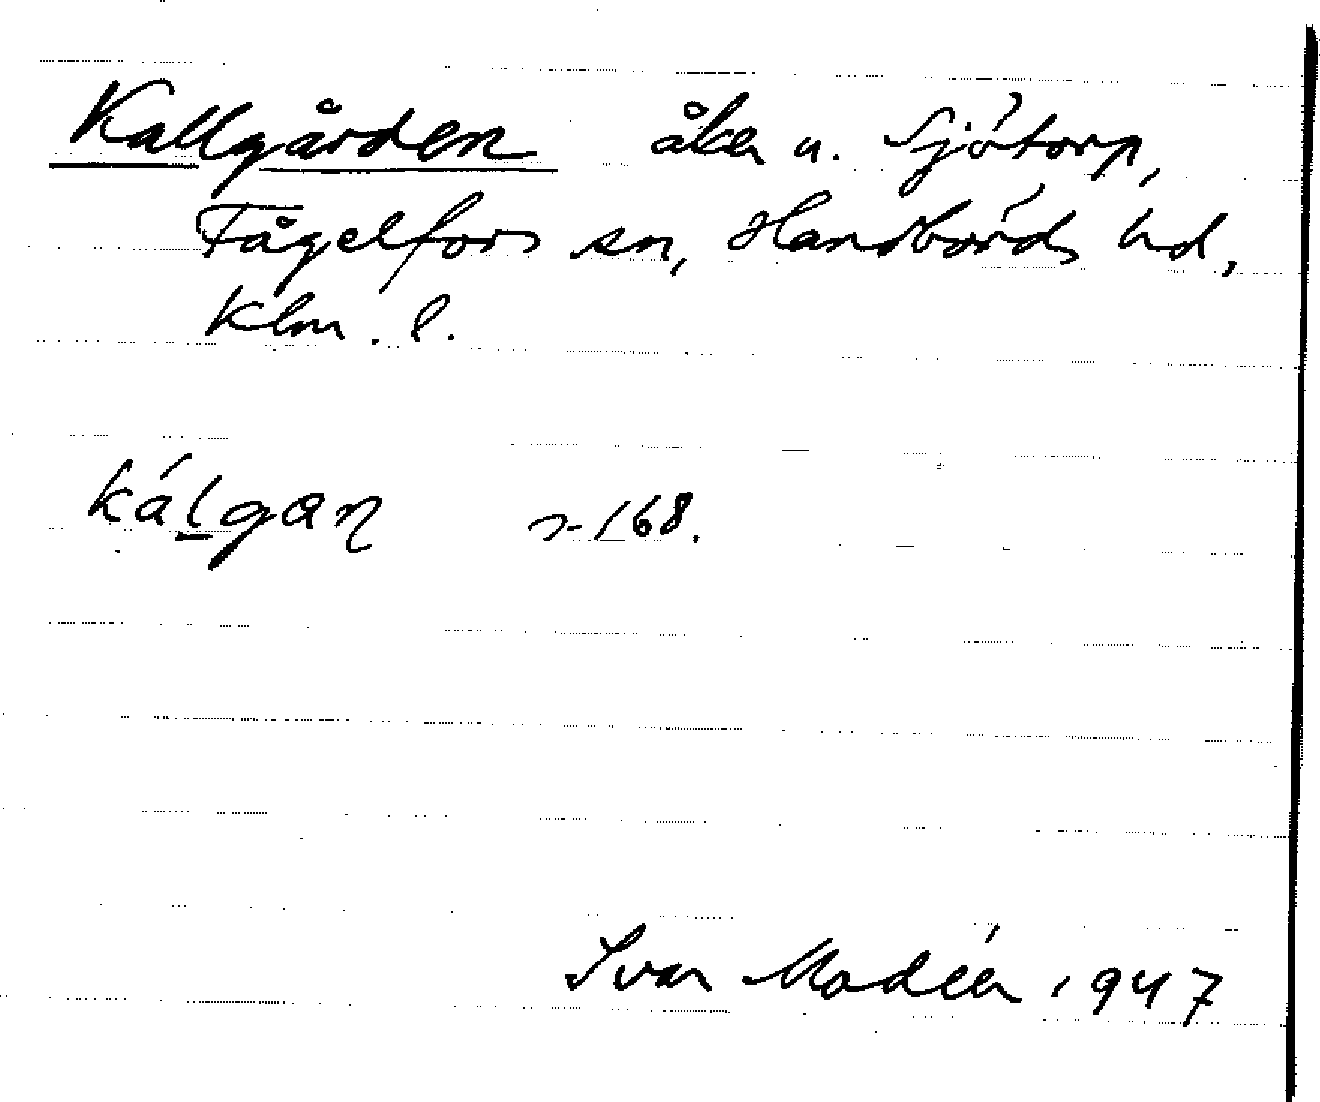 Kallgården åker u. Sjötorp,
Fågelfors sn, Handbörds hd,
Klm. l.
kálgan s-168.
Ivar Modéer 1947